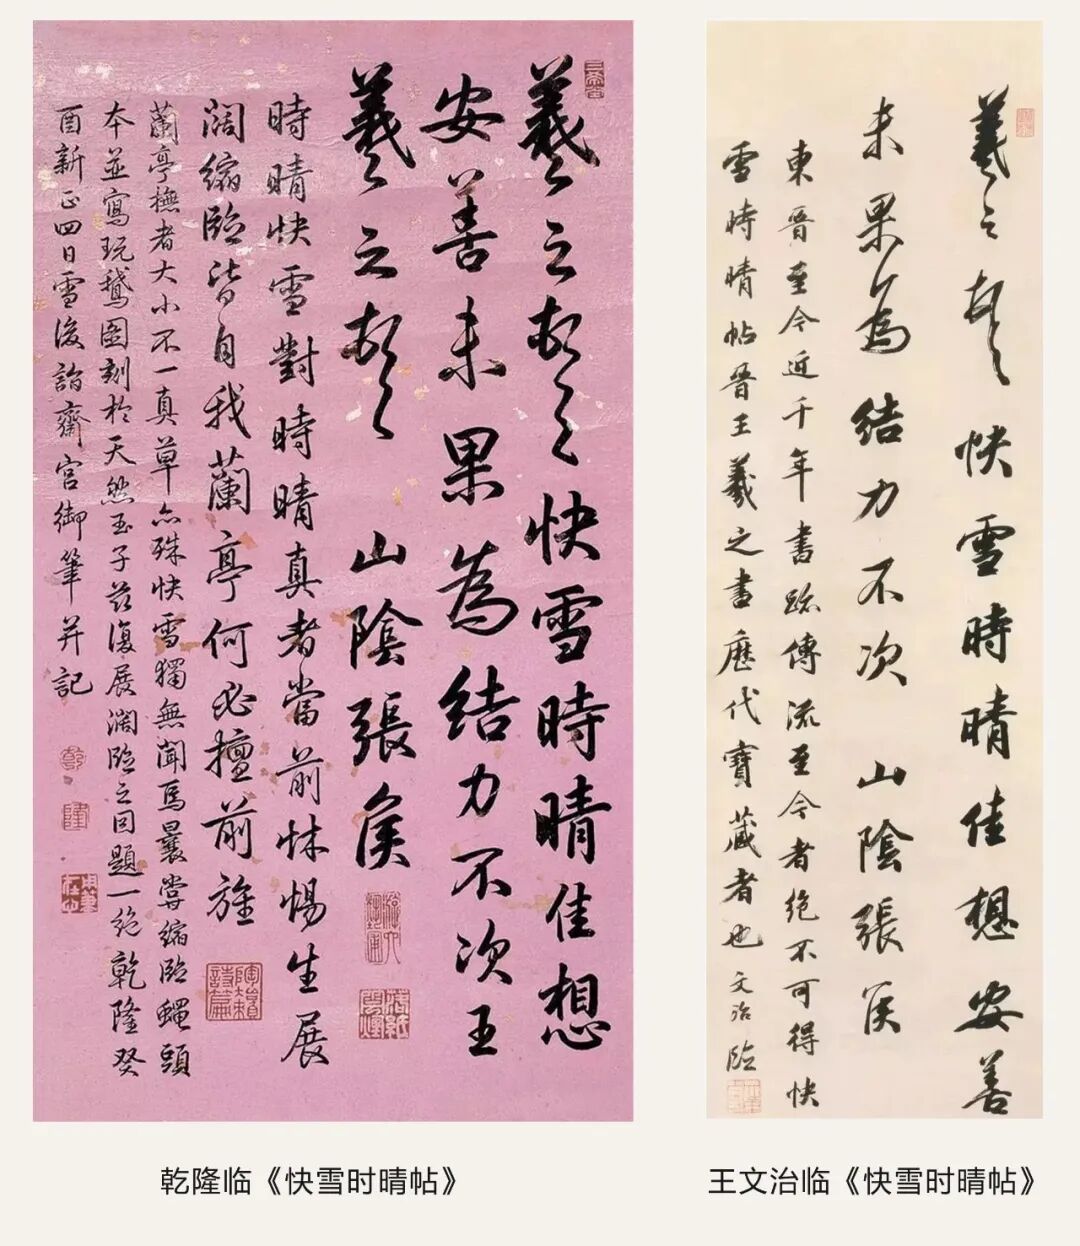 三希堂
羲之頓首快雪時晴佳想
安善未果為結力不次王
羲之頓首 山陰張侯
時晴快雪對時晴真者當前怵惕生展
闊縮臨皆自我蘭亭何必擅前旌
蘭亭撫者大小不一真草亦殊快雪獨無聞焉曩嘗縮臨蠅頭
本並寫玩鵝圖刻於天然玉子茲復展闊臨之因題一絕乾隆癸
酉新正四日雪後詣齋宮御筆并記
乾
隆
乾隆临《快雪时晴帖》
羲之頓首快雪時晴佳想安善
未果為結力不次 山陰張侯
東晉至今近千年書跡傳流至今者絕不可得快
雪時晴帖晉王羲之書歷代寶藏者也文治臨
王文治临《快雪时晴帖》